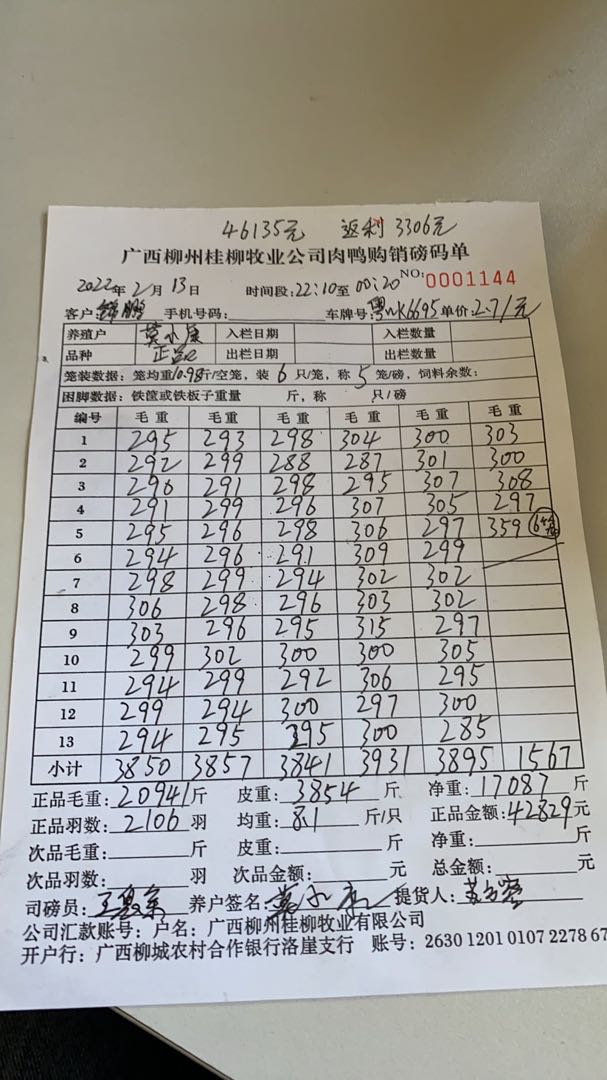 46135元 返利 3306元
广西柳州桂柳牧业公司肉鸭购销磅码单
2022年2月13日 时间段:22:10至00:20 NO:0001144
客户: 锦鹏 手机号码: 车牌号:粤 K6695 单价:2.71元
养殖户 莫小康 入栏日期 入栏数量
品种 出栏日期 出栏数量
笼装数据:笼均重10.98斤/空笼,装6只/笼,称5笼/磅,饲料余数:
困脚数据:铁筐或铁板子重量 斤,称 只/磅
编号 毛重 毛重 毛重 毛重 毛重 毛重
1 295 293 298 304 300 303
2 292 299 288 287 301 300
3 296 291 298 295 307 308
4 291 299 296 307 305 297
5 295 296 298 306 297 359 6笼
6 294 296 291 309 299
7 298 299 294 302 302
8 306 298 296 303 302
9 303 296 295 315 297
10 299 302 300 300 305
11 294 299 292 306 295
12 299 294 300 297 300
13 294 295 295 300 285
小计 3850 3857 3841 3931 3895 1567
正品毛重:20941斤 皮重:3854斤 净重:17087斤
正品羽数:2106羽 均重:8.1斤/只 正品金额:42829元
次品毛重: 斤 皮重: 斤 净重: 斤
次品羽数: 羽 次品金额: 元 总金额: 元
司磅员: 养户签名: 提货人:
公司汇款账号:户名:广西柳州桂柳牧业有限公司
开户行:广西柳城农村合作银行洛崖支行 账号:2630 1201 0107 2278 67